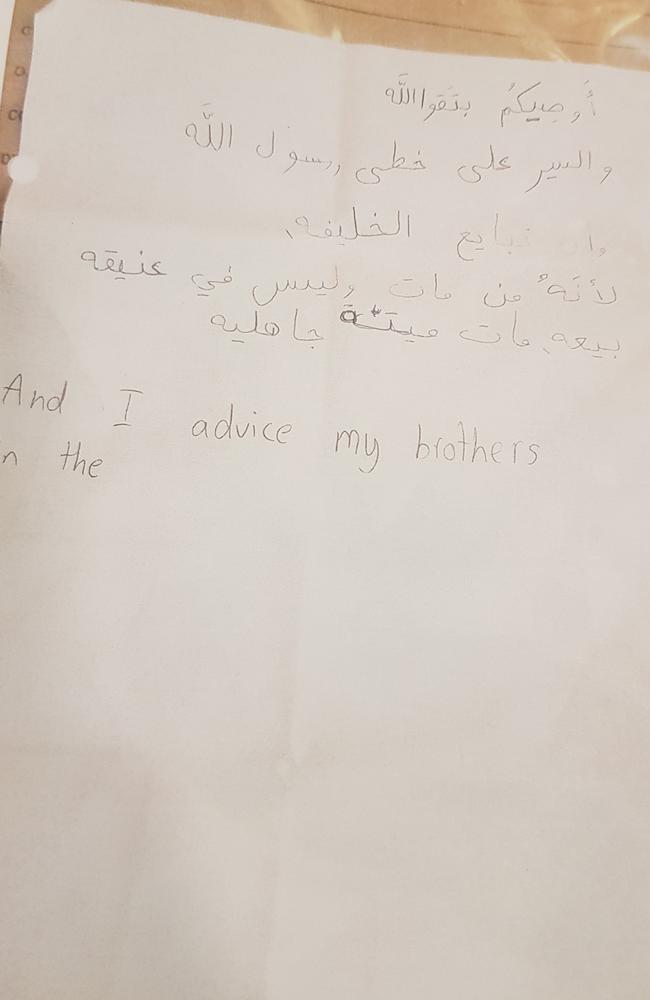 أُوصِيكُم بتَقوا اللَّه
والسير على خطى رسول اللَّه
وان نبايع الخليفه،
لأنَهُ من مات وليس في عنيقه
بيعه، مات ميتـةً جاهليه
And I advice my brothers
n the